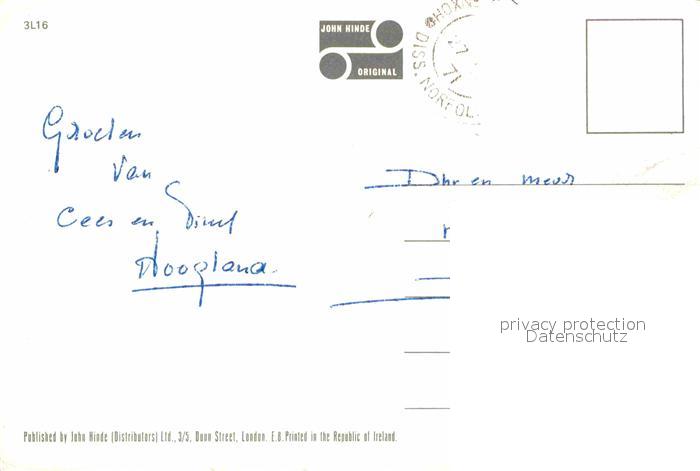 3L16
JOHN HINDE
ORIGINAL
DISS. NORFOL
27
71
Groeten
Van
Cees en
Hoogland.
Dhr en mevr
privacy protection
Datenschutz
Published by John Hinde (Distributors) Ltd., 3/5, Dunn Street, London. E.8. Printed in the Republic of Ireland.